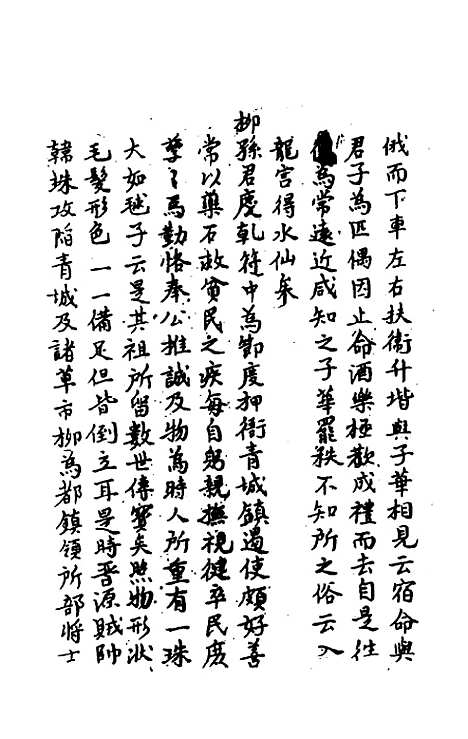 俄而下車左右扶衞升堦與子華相見云宿命與
君子為匹偶因止命酒樂極歡成禮而去自是往
為常遠近咸知之子華罷秩不知所之俗云入
龍宮得水仙矣
柳孫君慶乾符中為節度押衙青城鎮遏使頗好善
常以藥石救貧民之疾每自躬親撫視健卒民庶
孳〻焉勤恪奉公推誠及物為時人所重有一珠
大如毬子云是其祖所留數世傳寶矣照物形狀
毛髮形色一一備足但皆倒立耳是時晋源賊帥
韓珠攻陷青城及諸草市柳為都鎮領所部將士